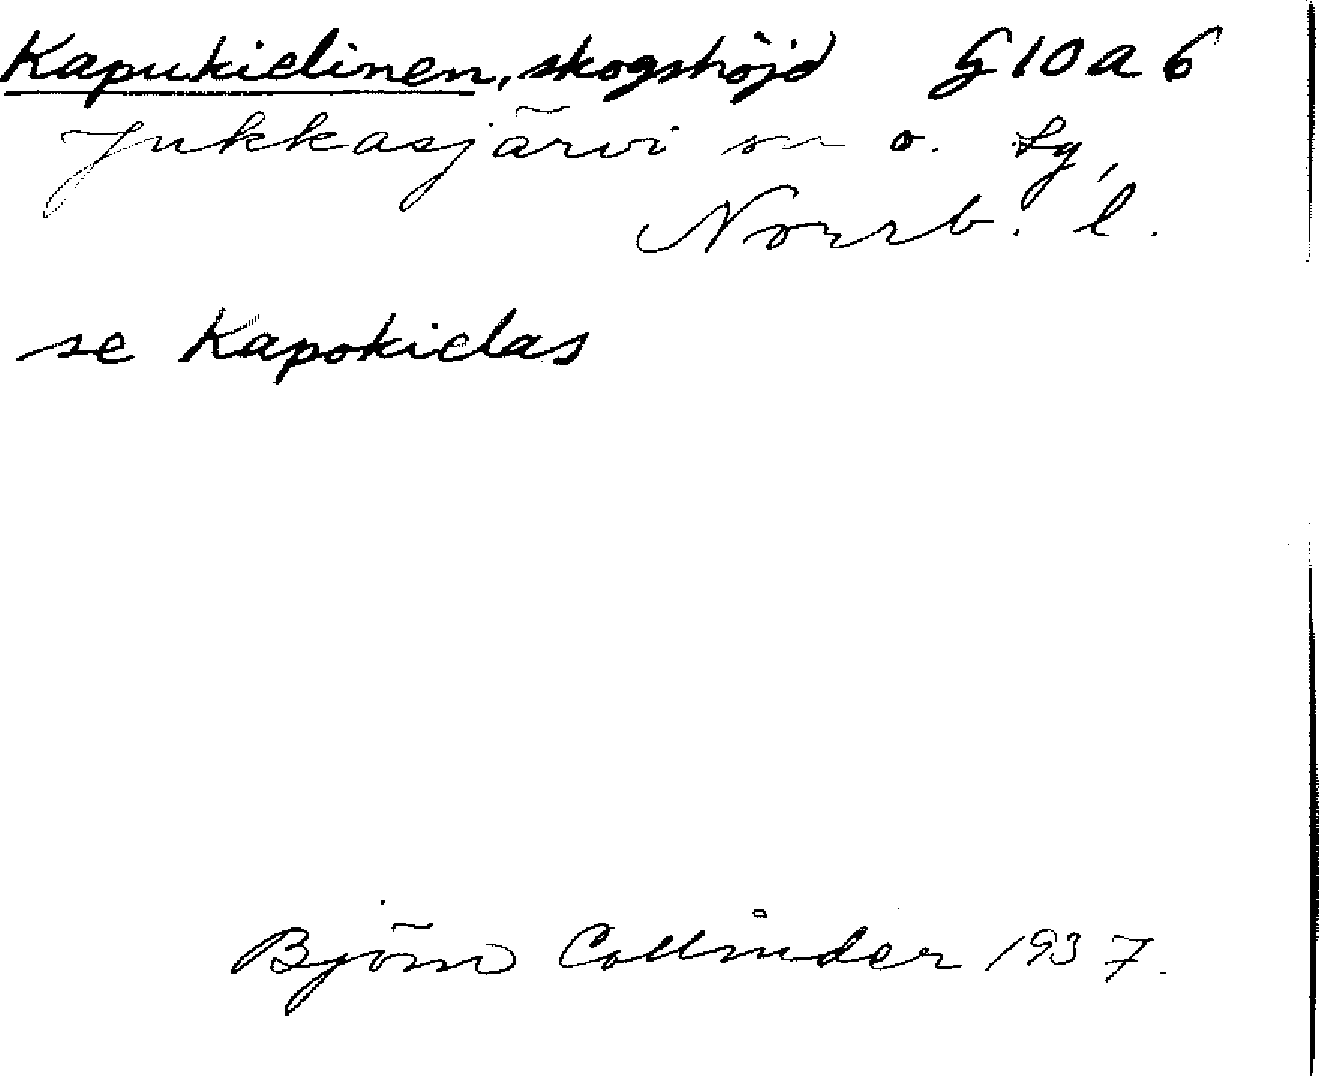 Kapukielinen, skogshöjd G10a6
Jukkasjärvi sn o. tg,
Norrb. l.
se Kapokielas
Björn Collinder 1937.